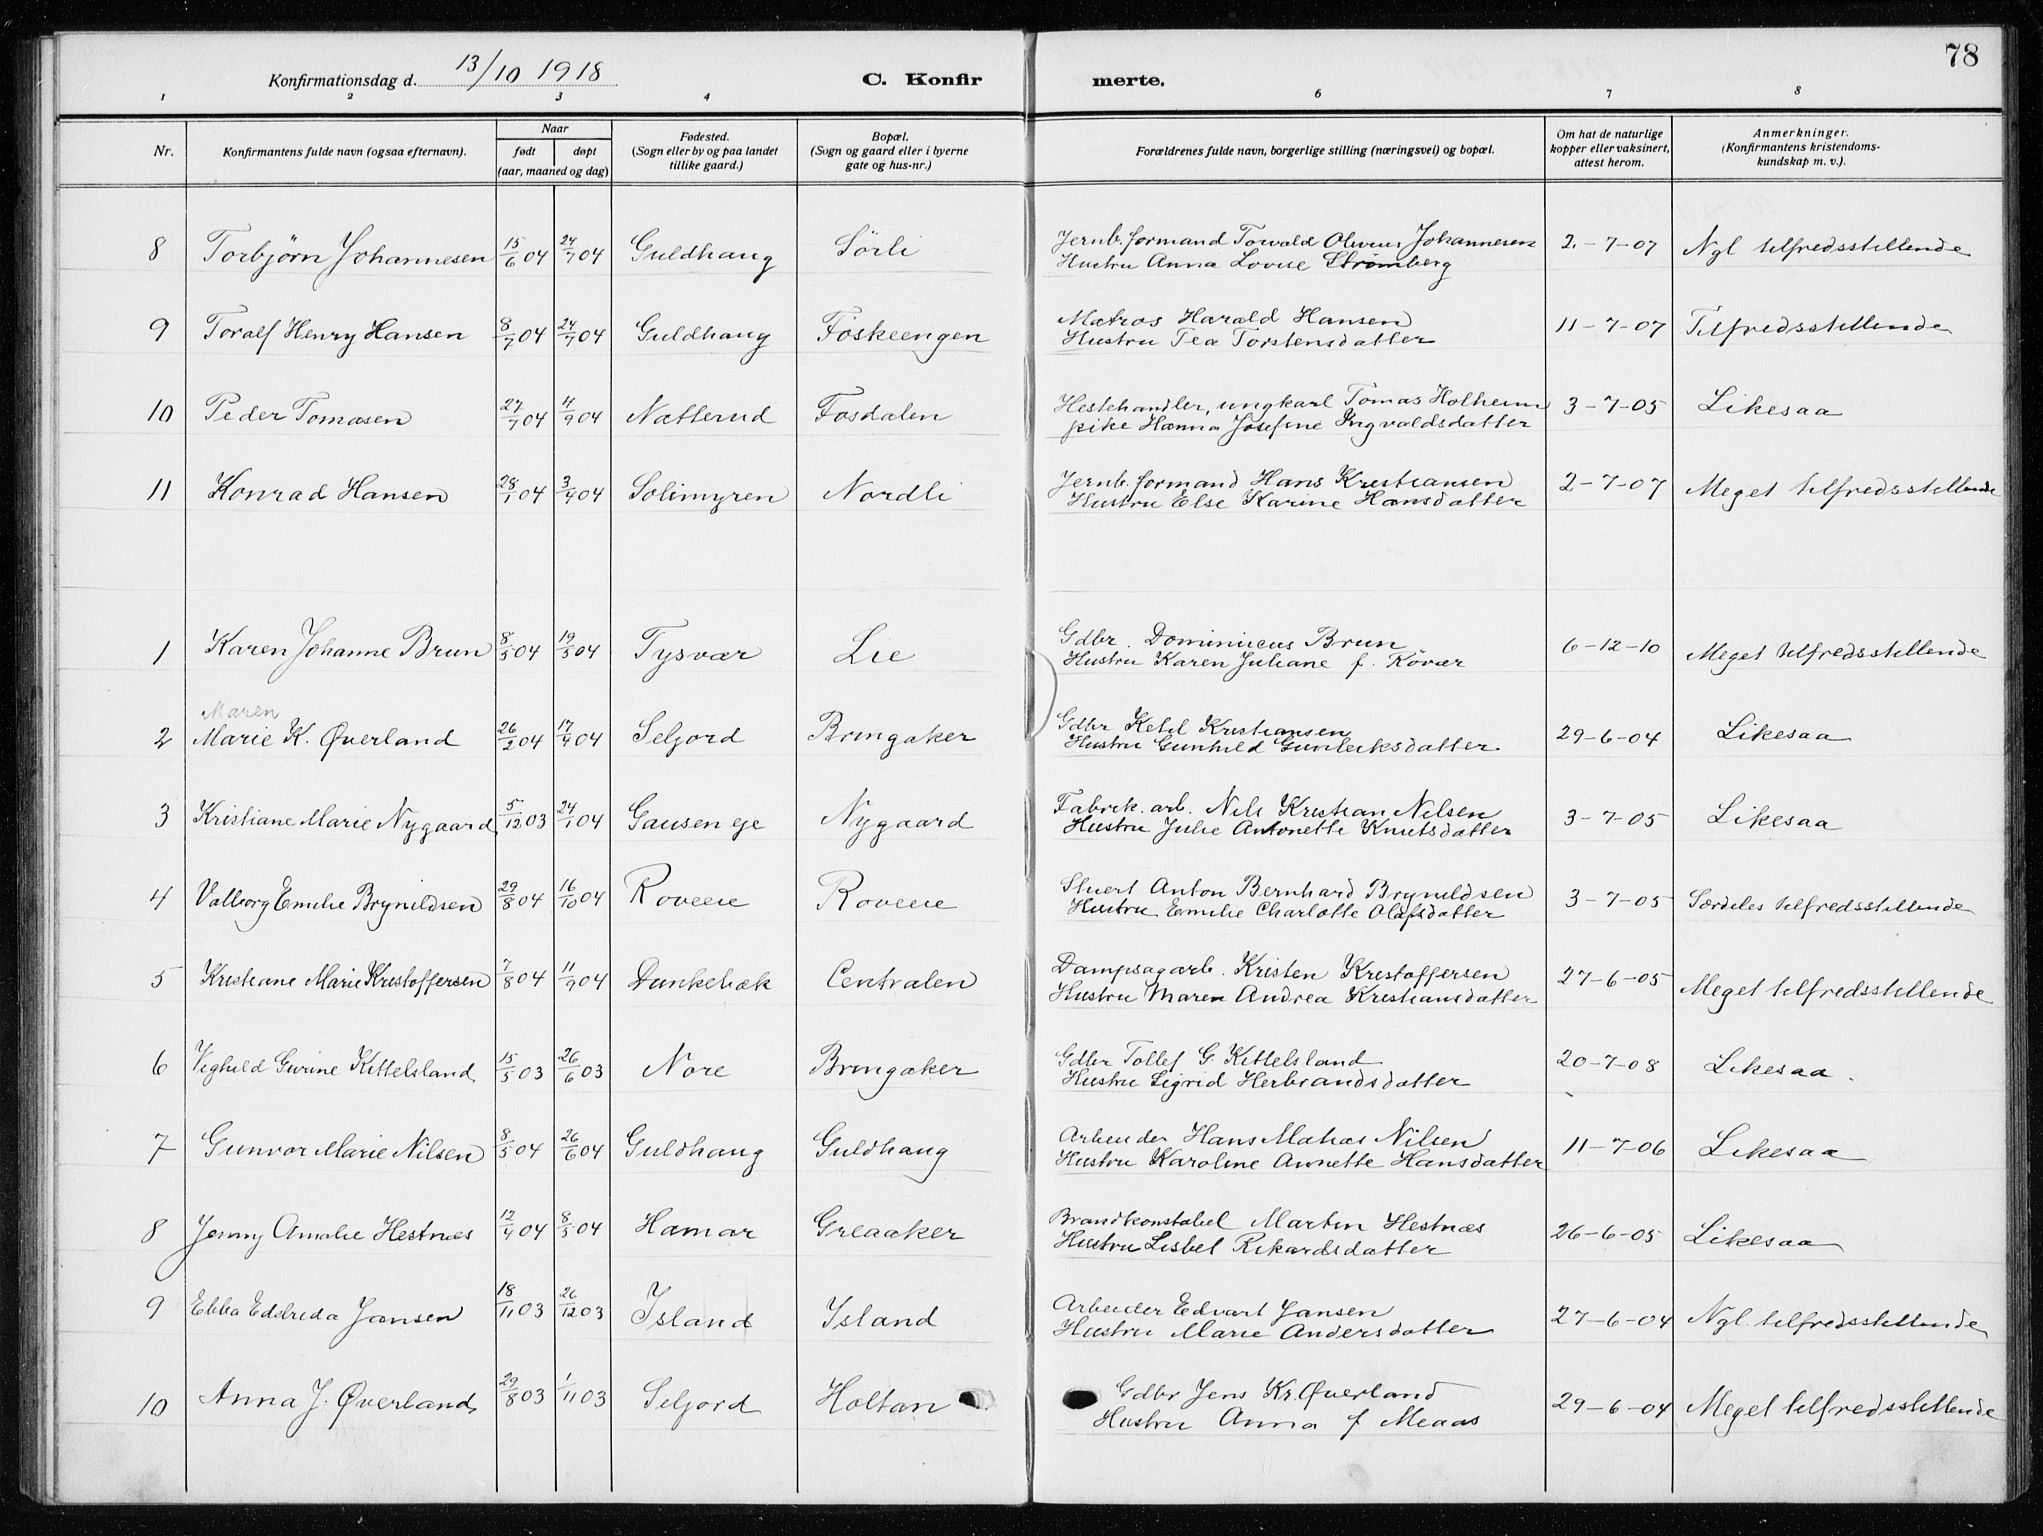 78
Konfirmationsdag d. 13/10 1918 C. Konfirmerte.
1 2 3 4 6 7 8
Nr. Konfirmantens fulde navn (ogsaa efternavn). Naar født døpt (aar, maaned og dag) Fødested. (Sogn eller by og paa landet tillike gaard.) Bopæl. (Sogn og gaard eller i byerne gate og hus-nr.) Forældrenes fulde navn, borgerlige stilling (næringsvei) og bopæl. Om hat de naturlige kopper eller vaksinert, attest herom. Anmerkninger. (Konfirmantens kristendomskundskap m. v.).
8 Torbjörn Johannesen 15/6 04 24/7 04 Guldhaug Sörli Jernb. formand Torvald Oliveus Johannesen 2.-7-07 Ngl tilfredsstillende
Hustru Anna Lovise Strømberg
9 Toralf Henry Hansen 8/7 04 24/7 04 Guldhaug Foskeengen Matros Harald Hansen 11-7-07 Tilfredsstillende
Hustru Tea Torstensdatter
10 Peder Tomasen 27/7 04 4/9 04 Natterud Fosdalen Hestehandler, ungkarl Tomas Holheim 3-7-05 Likesaa
pike Hanna Josefine Ingvaldsdatter
11 Konrad Hansen 28/1 04 3/4 04 Solimyren Nordli Jernb. formand Hans Kristiansen 2-7-07 Meget tilfredsstillende
Hustru Else Karine Hansdatter
1 Karen Johanne Brun 8/5 04 19/5 04 Tysvær Lie Gdbr. Dominicus Brun 6-12-10 Meget tilfredsstillende
Hustru Karen Juliane f. Rövær
Maren
2 Marie K. Øverland 26/2 04 17/4 04 Seljord Bringaker Gdbr Ketil Kristiansen 29-6-04 Likesaa
Hustru Gunhild Gunleiksdatter
3 Kristiane Marie Nygaard 5/12 03 24/1 04 Gausen eje Nygaard Fabrik. arb. Nils Kristian Nilsen 3-7-05 Likesaa
Hustru Julie Antonette Knutsdatter
4 Valborg Emilie Brynildsen 29/8 04 16/10 04 Roveie Roveie Stuert Anton Bernhard Brynildsen 3-7-05 Særdeles tilfredsstillende
Hustru Emilie Charlotte Olafsdatter
5 Kristiane Marie Kristoffersen 7/8 04 11/9 04 Dunkebæk Centralen Dampsagarb. Kristen Kristoffersen 27-6-05 Meget tilfredsstillende
Hustru Maren Andrea Kristiansdatter
6 Vighild Gurine Kittelsland 15/5 03 26/6 03 Nore Bringaker Gdbr Tollef G. Kittelsland 20-7-08 Likesaa
Hustru Sigrid Herbrandsdatter
7 Gunvor Marie Nilsen 8/5 04 26/6 04 Guldhaug Guldhaug Arbeider Hans Matias Nilsen 11-7-06 Likesaa
Hustru Karoline Annette Hansdatter
8 Jenny Amalie Hestnæs 12/4 04 8/5 04 Hamar Greaaker Brandkonstabel Martin Hestnæs 26-6-05 Likesaa
Hustru Lisbet Rikardsdatter
9 Ebba Edelrida Jansen 18/11 03 26/12 03 Island Island Arbeider Edvart Jansen 27-6-04 Ngl. tilfredsstillende
Hustru Marie Andersdatter
10 Anna J. Øverland 29/8 03 1/11 03 Seljord Holtan Gdbr Jens Kr. Øverland 29-6-04 Meget tilfredsstillende
Hustru Anna f Meaas